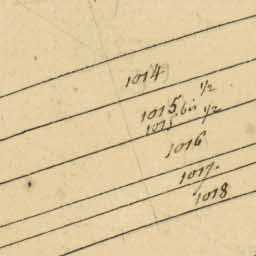 1014
1015 1/2
1015 bis 1/2
1016
1017
1018